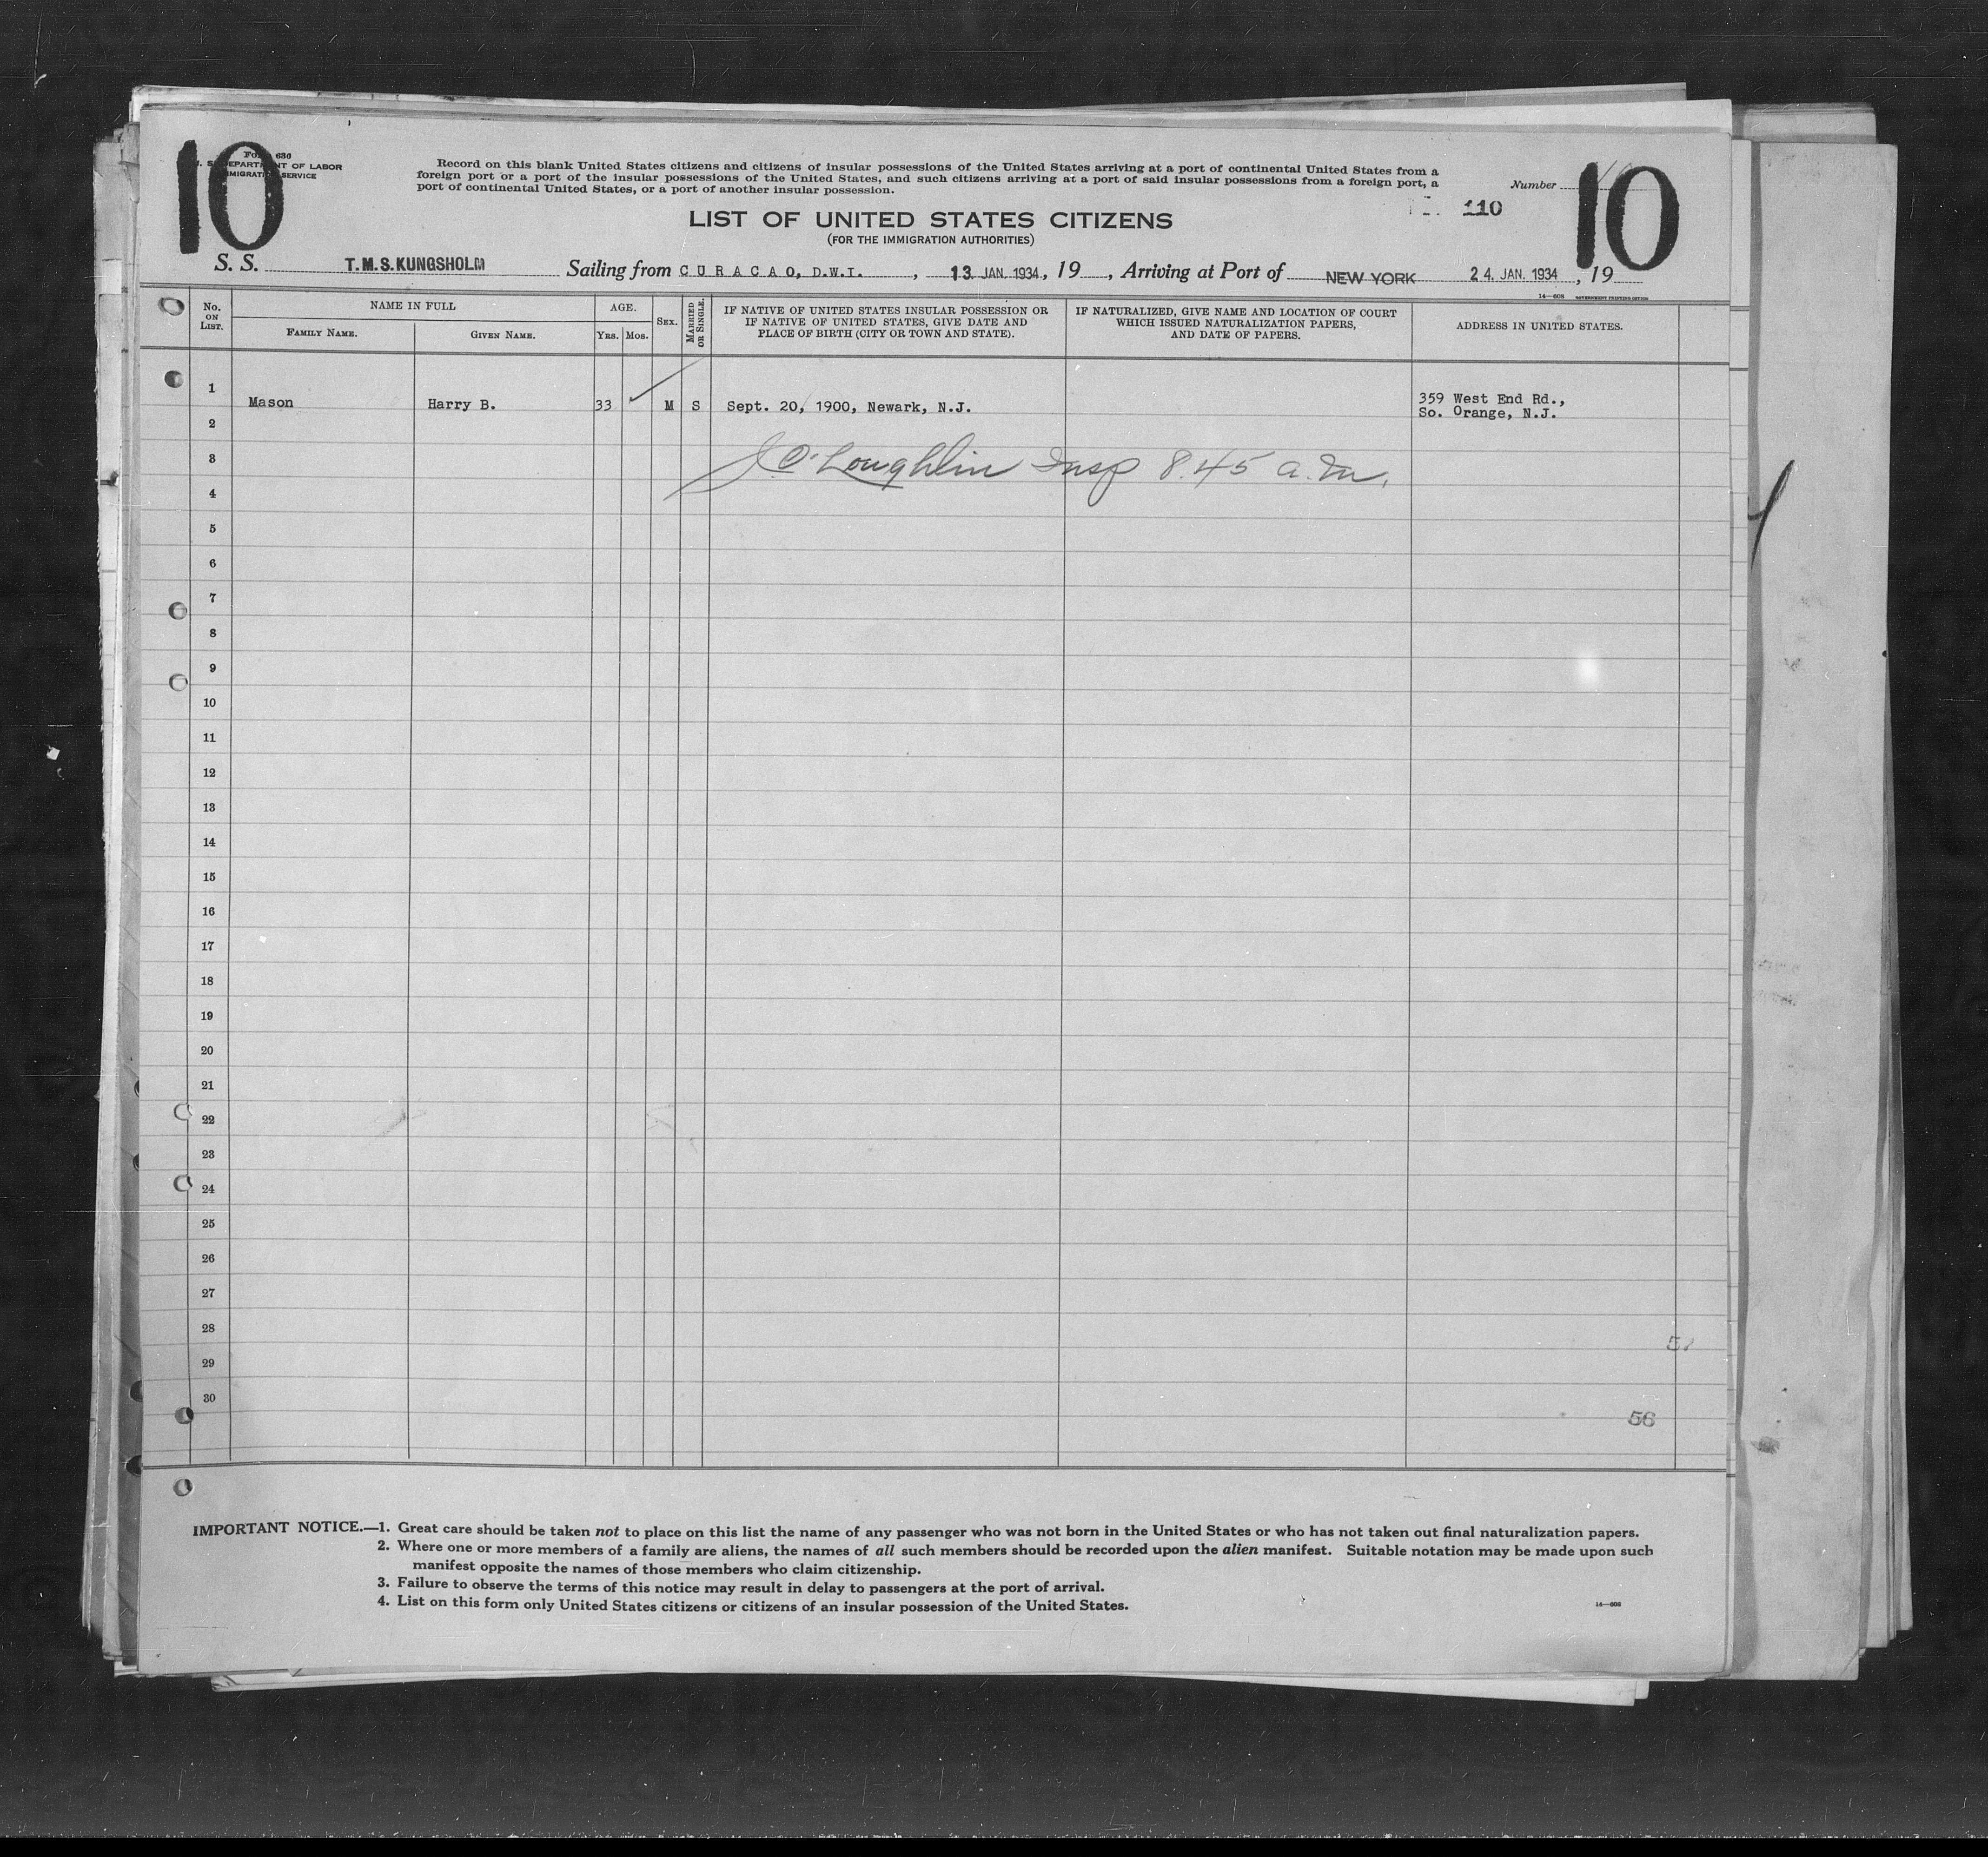 10
Form 630
U. S. DEPARTMENT OF LABOR
IMMIGRATION SERVICE
Record on this blank United States citizens and citizens of insular possessions of the United States arriving at a port of continental United States from a
foreign port or a port of the insular possessions of the United States, and such citizens arriving at a port of said insular possessions from a foreign port, a
port of continental United States, or a port of another insular possession.
Number
10
110
LIST OF UNITED STATES CITIZENS
(FOR THE IMMIGRATION AUTHORITIES)
S. S. T.M.S.KUNGSHOLM Sailing from CURACAO, D.W.I. , 13 JAN. 1934, 19 , Arriving at Port of NEW YORK 24. JAN. 1934 , 19
14—608 GOVERNMENT PRINTING OFFICE
No. ON LIST.
NAME IN FULL
FAMILY NAME.
GIVEN NAME.
AGE.
YRS. MOS.
SEX.
MARRIED OR SINGLE.
IF NATIVE OF UNITED STATES INSULAR POSSESSION OR
IF NATIVE OF UNITED STATES, GIVE DATE AND
PLACE OF BIRTH (CITY OR TOWN AND STATE).
IF NATURALIZED, GIVE NAME AND LOCATION OF COURT
WHICH ISSUED NATURALIZATION PAPERS,
AND DATE OF PAPERS.
ADDRESS IN UNITED STATES.
1
Mason Harry B. 33 M S Sept. 20, 1900, Newark, N.J.
359 West End Rd.,
So. Orange, N.J.
2
3
J. O'Loughlin Insp 8.45 a.m.
4
5
6
7
8
9
10
11
12
13
14
15
16
17
18
19
20
21
22
23
24
25
26
27
28
29
30
56
IMPORTANT NOTICE.—1. Great care should be taken not to place on this list the name of any passenger who was not born in the United States or who has not taken out final naturalization papers.
2. Where one or more members of a family are aliens, the names of all such members should be recorded upon the alien manifest. Suitable notation may be made upon such
manifest opposite the names of those members who claim citizenship.
3. Failure to observe the terms of this notice may result in delay to passengers at the port of arrival.
4. List on this form only United States citizens or citizens of an insular possession of the United States.
14—608